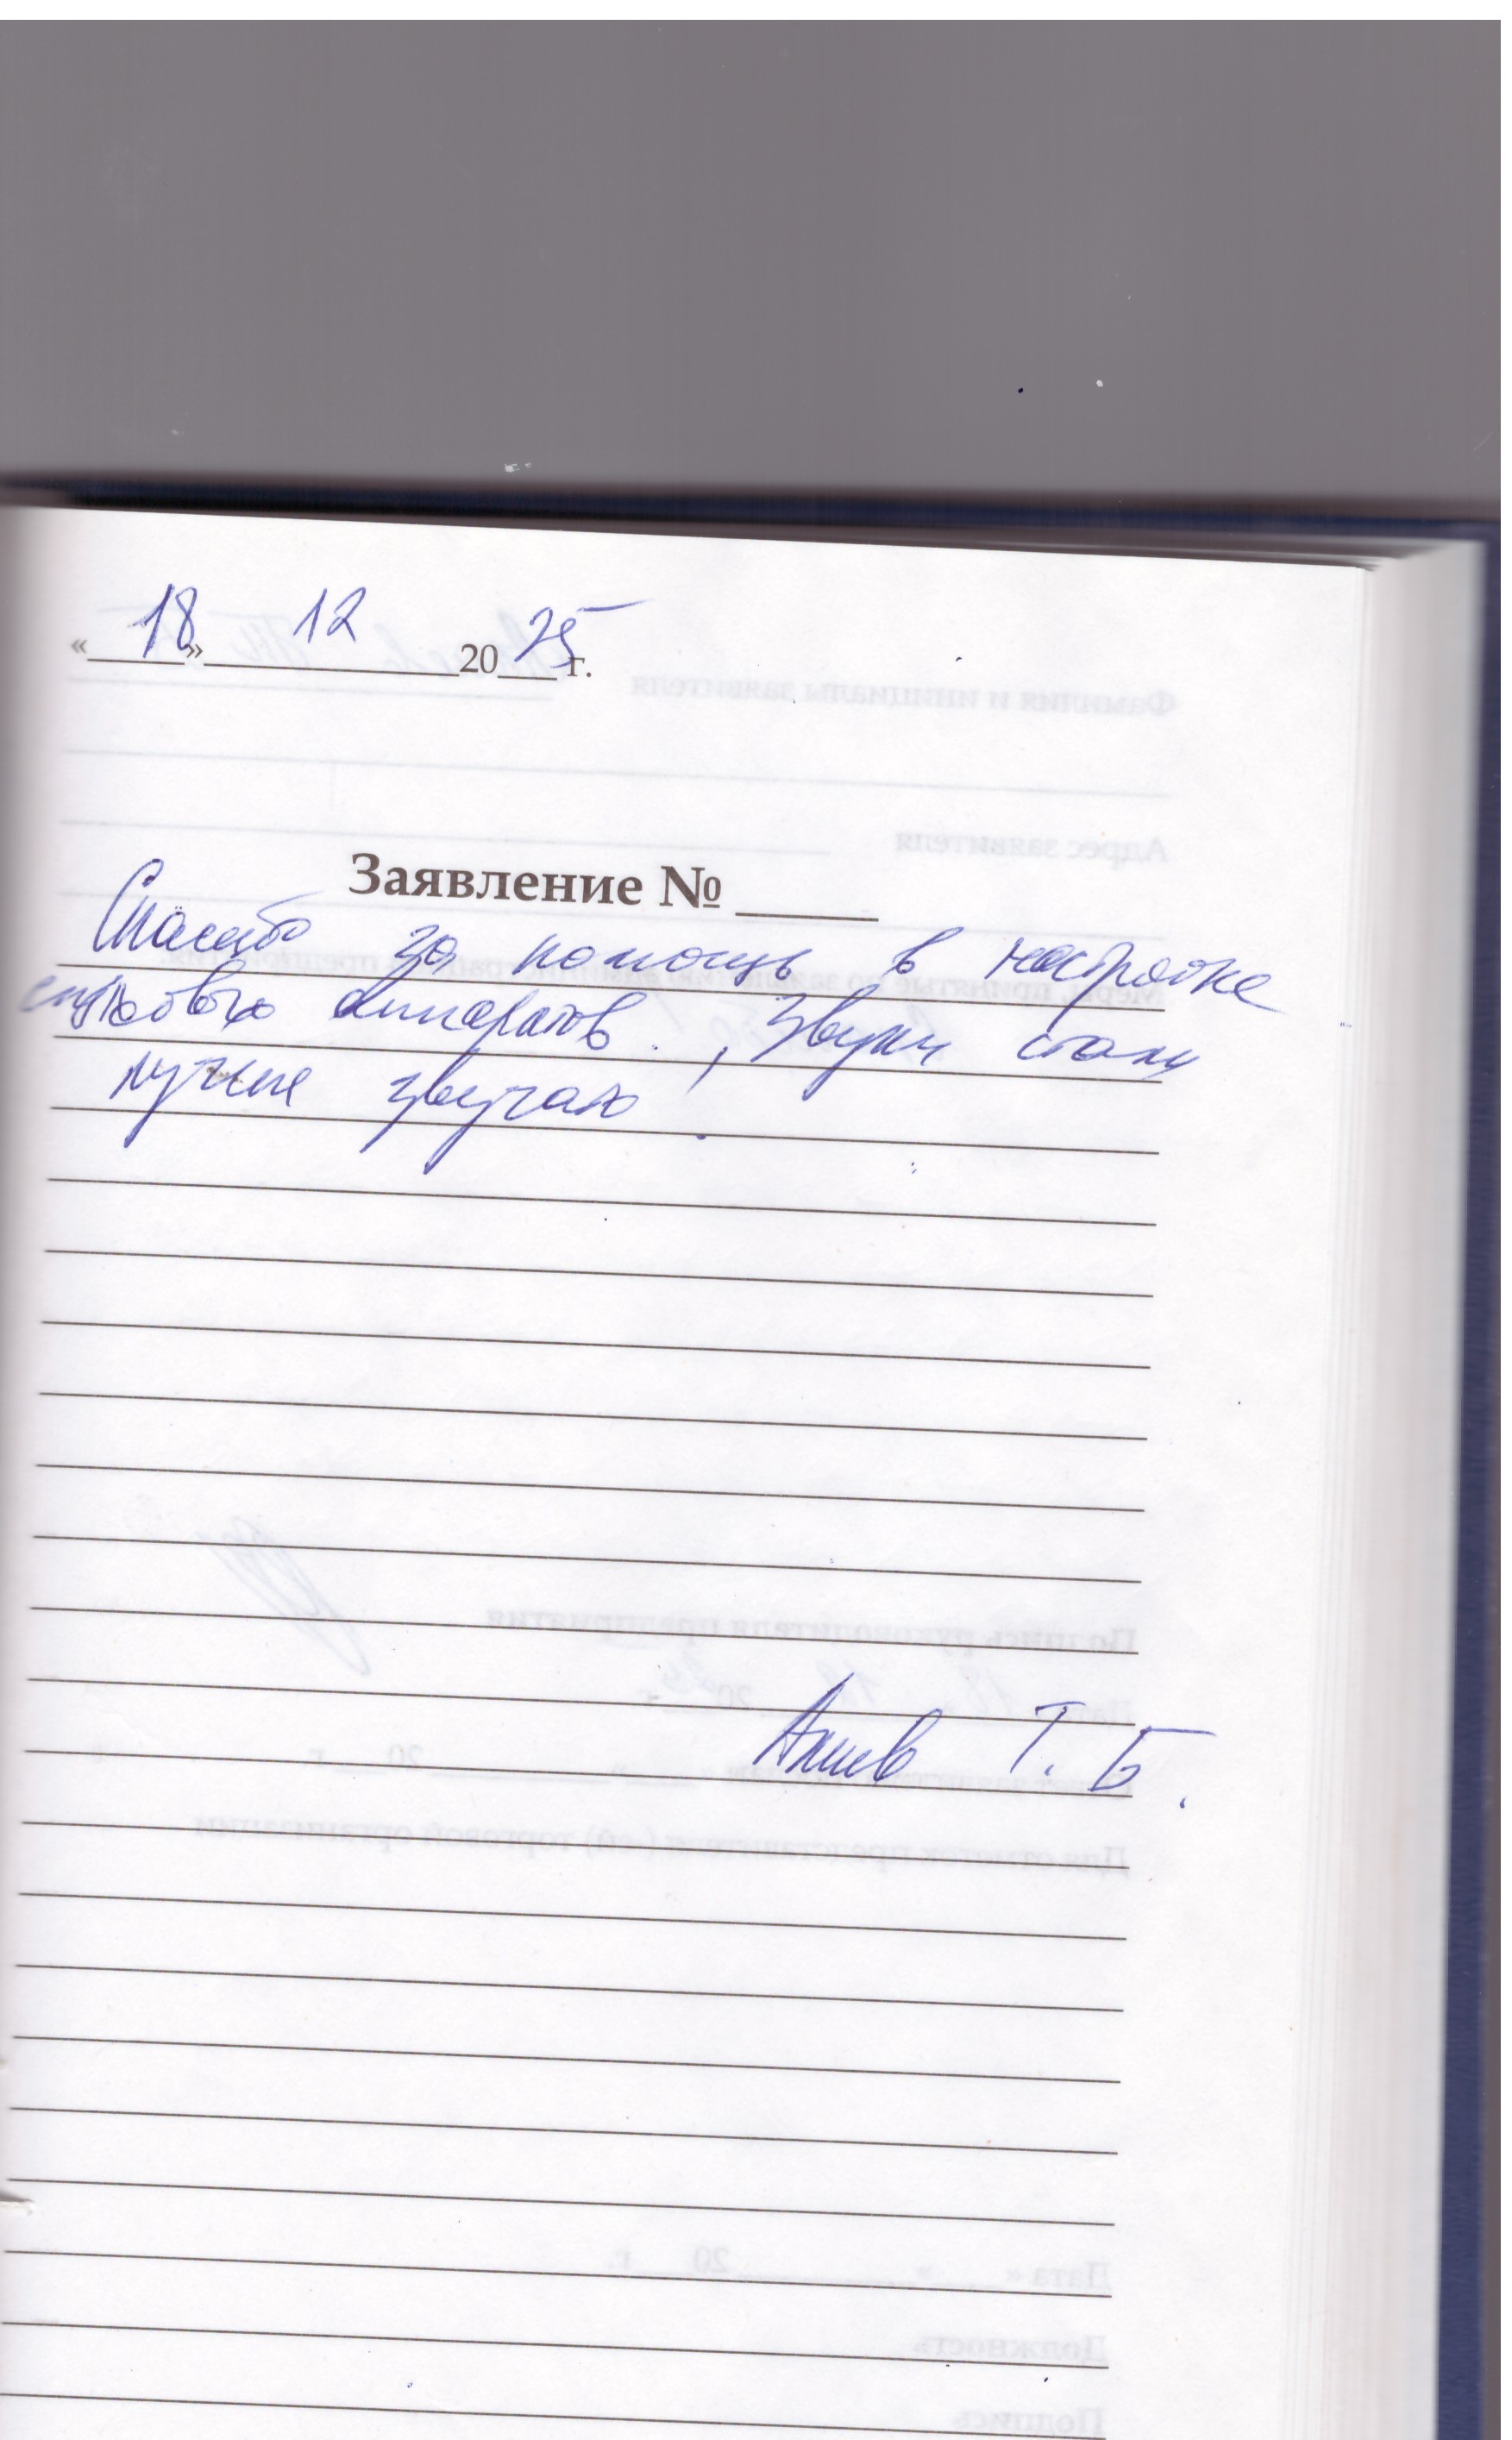 «18» 12 2025 г.
Заявление № ____
Спасибо за помощь в настройке
слуховых аппаратов. Звуки стали
лучше звучать.
Т. Б.